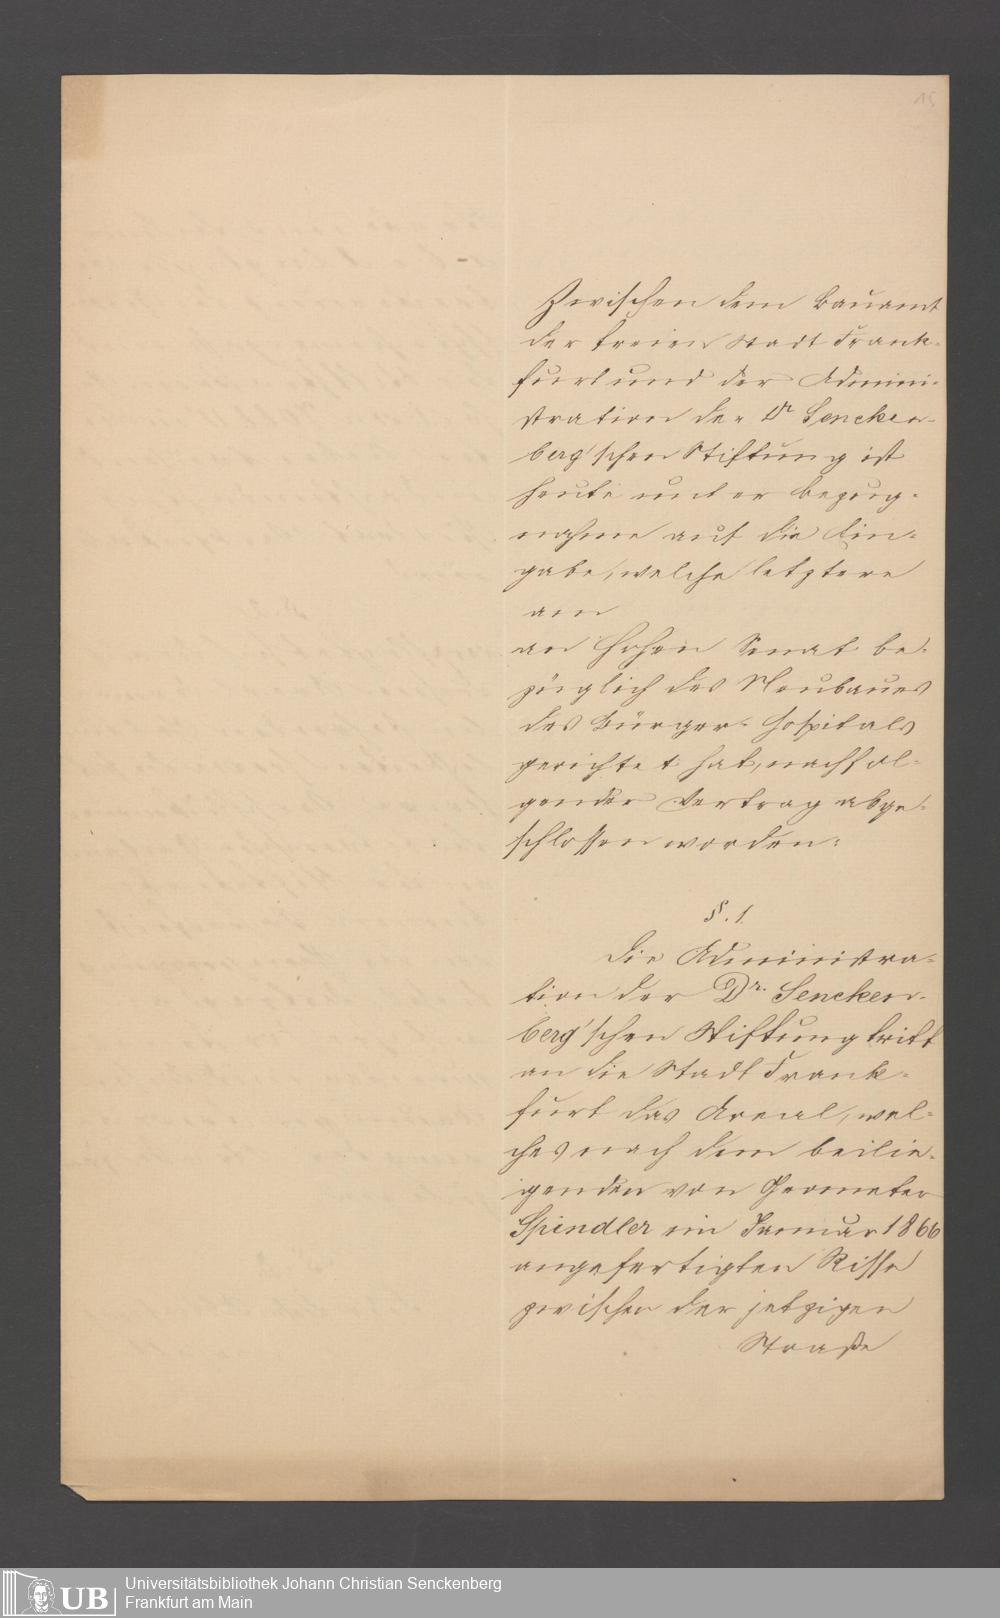 15
Zwischen dem Bauamt
der freien Stadt Frank-
furt und der Admini-
stration der Dr Sencken-
berg'schen Stiftung ist
heute unter Bezug-
nahme auf die Ein-
gabe, welche letztere
am
an Hohen Senat be-
züglich des Neubaues
des Bürger-Hospitals
gerichtet hat, nachfol-
gender Vertrag abge-
schlossen worden:
§. 1.
Die Administra-
tion der Dr. Sencken-
berg'schen Stiftung tritt
an die Stadt Frank-
furt das Areal, wel-
ches nach dem beilie-
genden von Geometer
Spindler im Januar 1866
angefertigten Risse
zwischen der jetzigen
Straße
Universitätsbibliothek Johann Christian Senckenberg
UB Frankfurt am Main